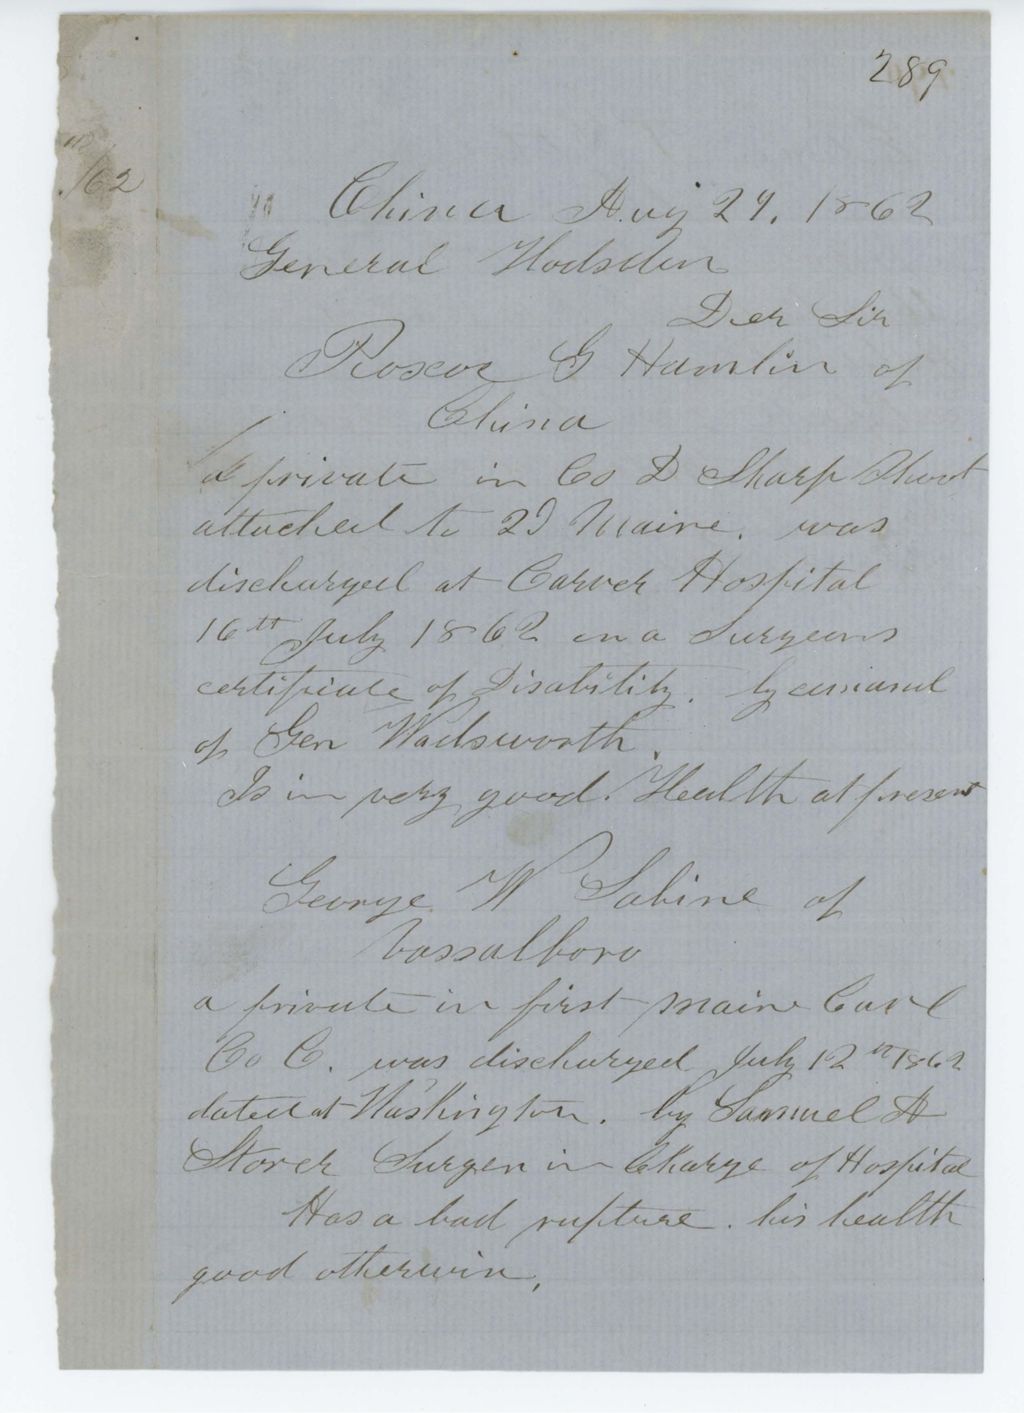 289
/62
China Aug 29. 1862
General Hodsdon
Der Sir
Roscoe G Hamlin of
China
a private in Co D Sharp Shoot
attached to 2d Maine. was
discharged at Carver Hospital
16th July 1862 on a Surgeons
certificate of Disability. by comand
of Gen Wadsworth.
Is in very good Health at present
George W Sabine of
Vassalboro
a private in first Maine Cavl
Co C. was discharged July 12th 1862
dated at Washington. by Samuel A
Storer Surgen in Charge of Hospital
Has a bad rupture. his health
good otherwise.